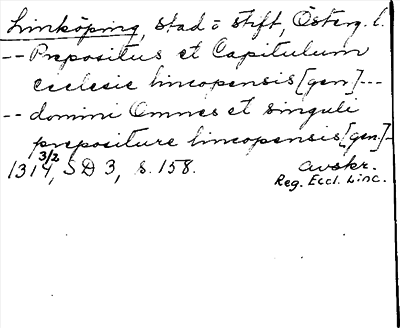 Linköping, stad o stift, Österg. l.
-- Prepositus et Capitulum
ecclesie lincopensis [gen] ---
-- domini Omnes et singuli
prepositure lincopensis [gen.] -
1314 3/2, SD 3, s. 158. avskr.
Reg. Eccl. Linc.